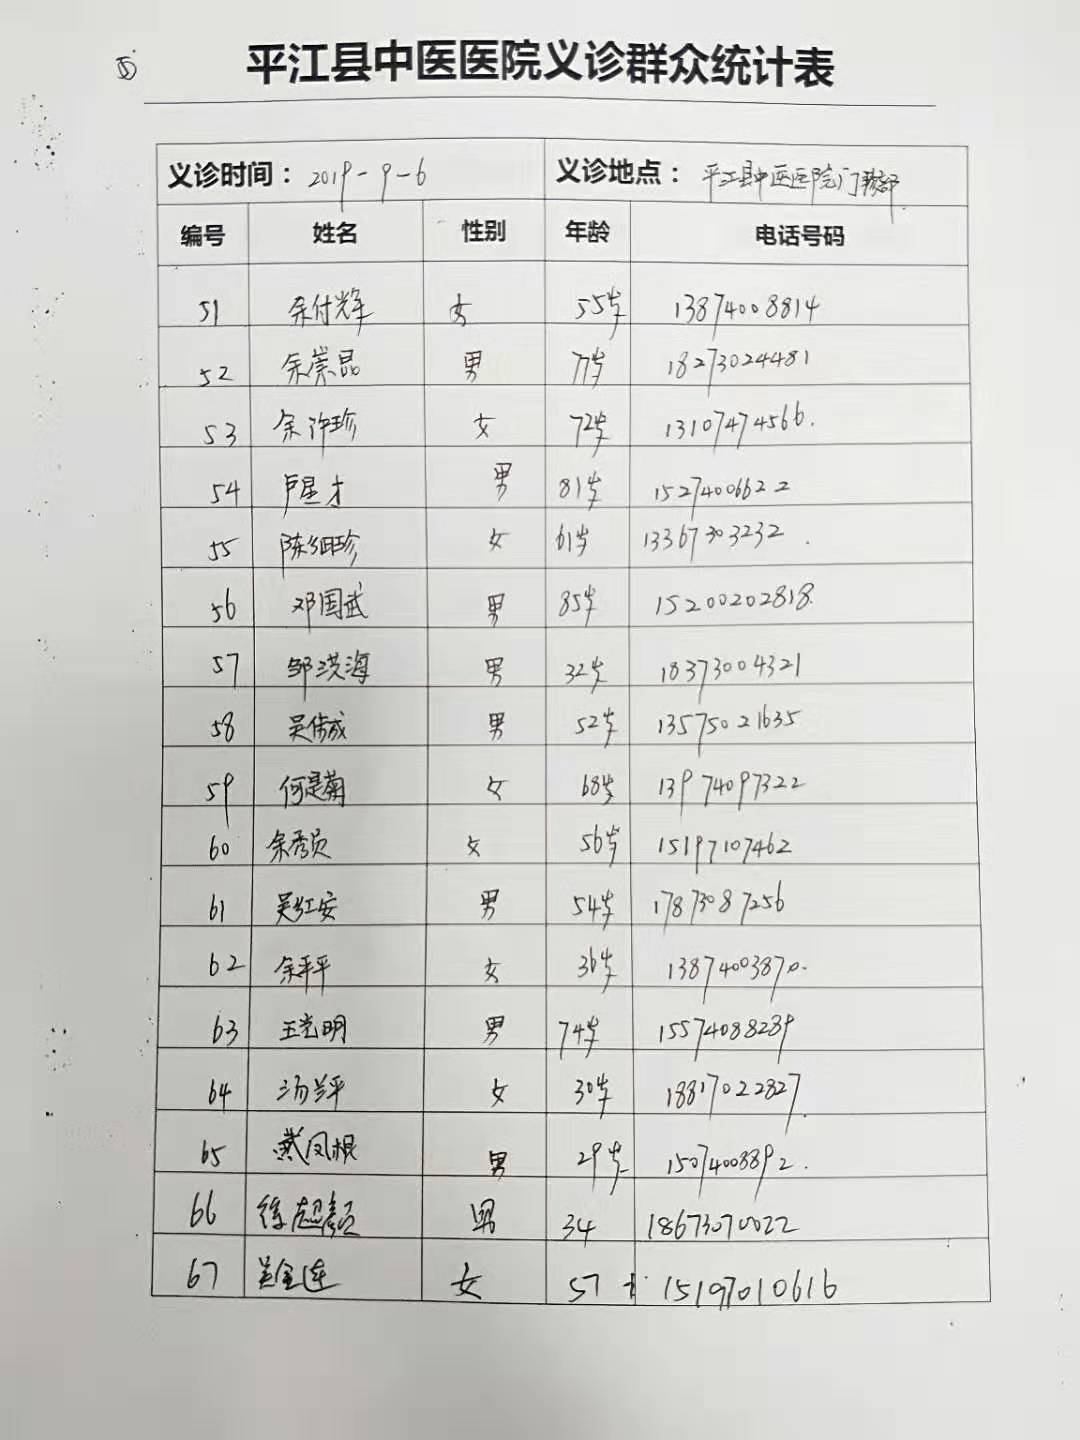 ⑤ 平江县中医医院义诊群众统计表
义诊时间：2019-9-6 义诊地点：平江县中医医院门诊部
编号 姓名 性别 年龄 电话号码
51 余付辉 女 55岁 13874008814
52 余崇晶 男 77岁 18273024481
53 余许珍 女 72岁 13107474566.
54 卢星才 男 81岁 15274006622
55 陈细珍 女 61岁 13367303232.
56 邓国武 男 85岁 15200202818.
57 邹洪海 男 32岁 18373004321
58 吴伟成 男 52岁 13575021635
59 何是菊 女 68岁 13974097322
60 余秀员 女 56岁 15197107462
61 吴红安 男 54岁 17873087256
62 余平平 女 36岁 13874003870.
63 王党明 男 74岁 15574088239
64 汤兰平 女 30岁 18817022827.
65 凤根 男 29岁 15074003892.
66 徐超 男 34 18673070022
67 吴金连 女 57 15197010616